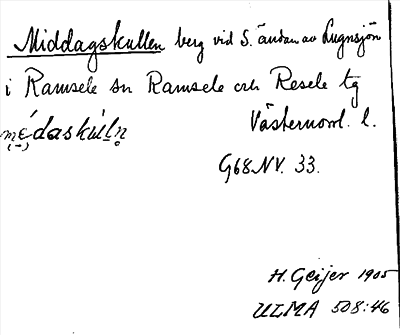 Middagskullen berg vid S. ändan av Lugnsjön
i Ramsele sn Ramsele och Resele tg
Västernorrl. l.
G68NV. 33.
H. Geijer 1905
ULMA 508:46